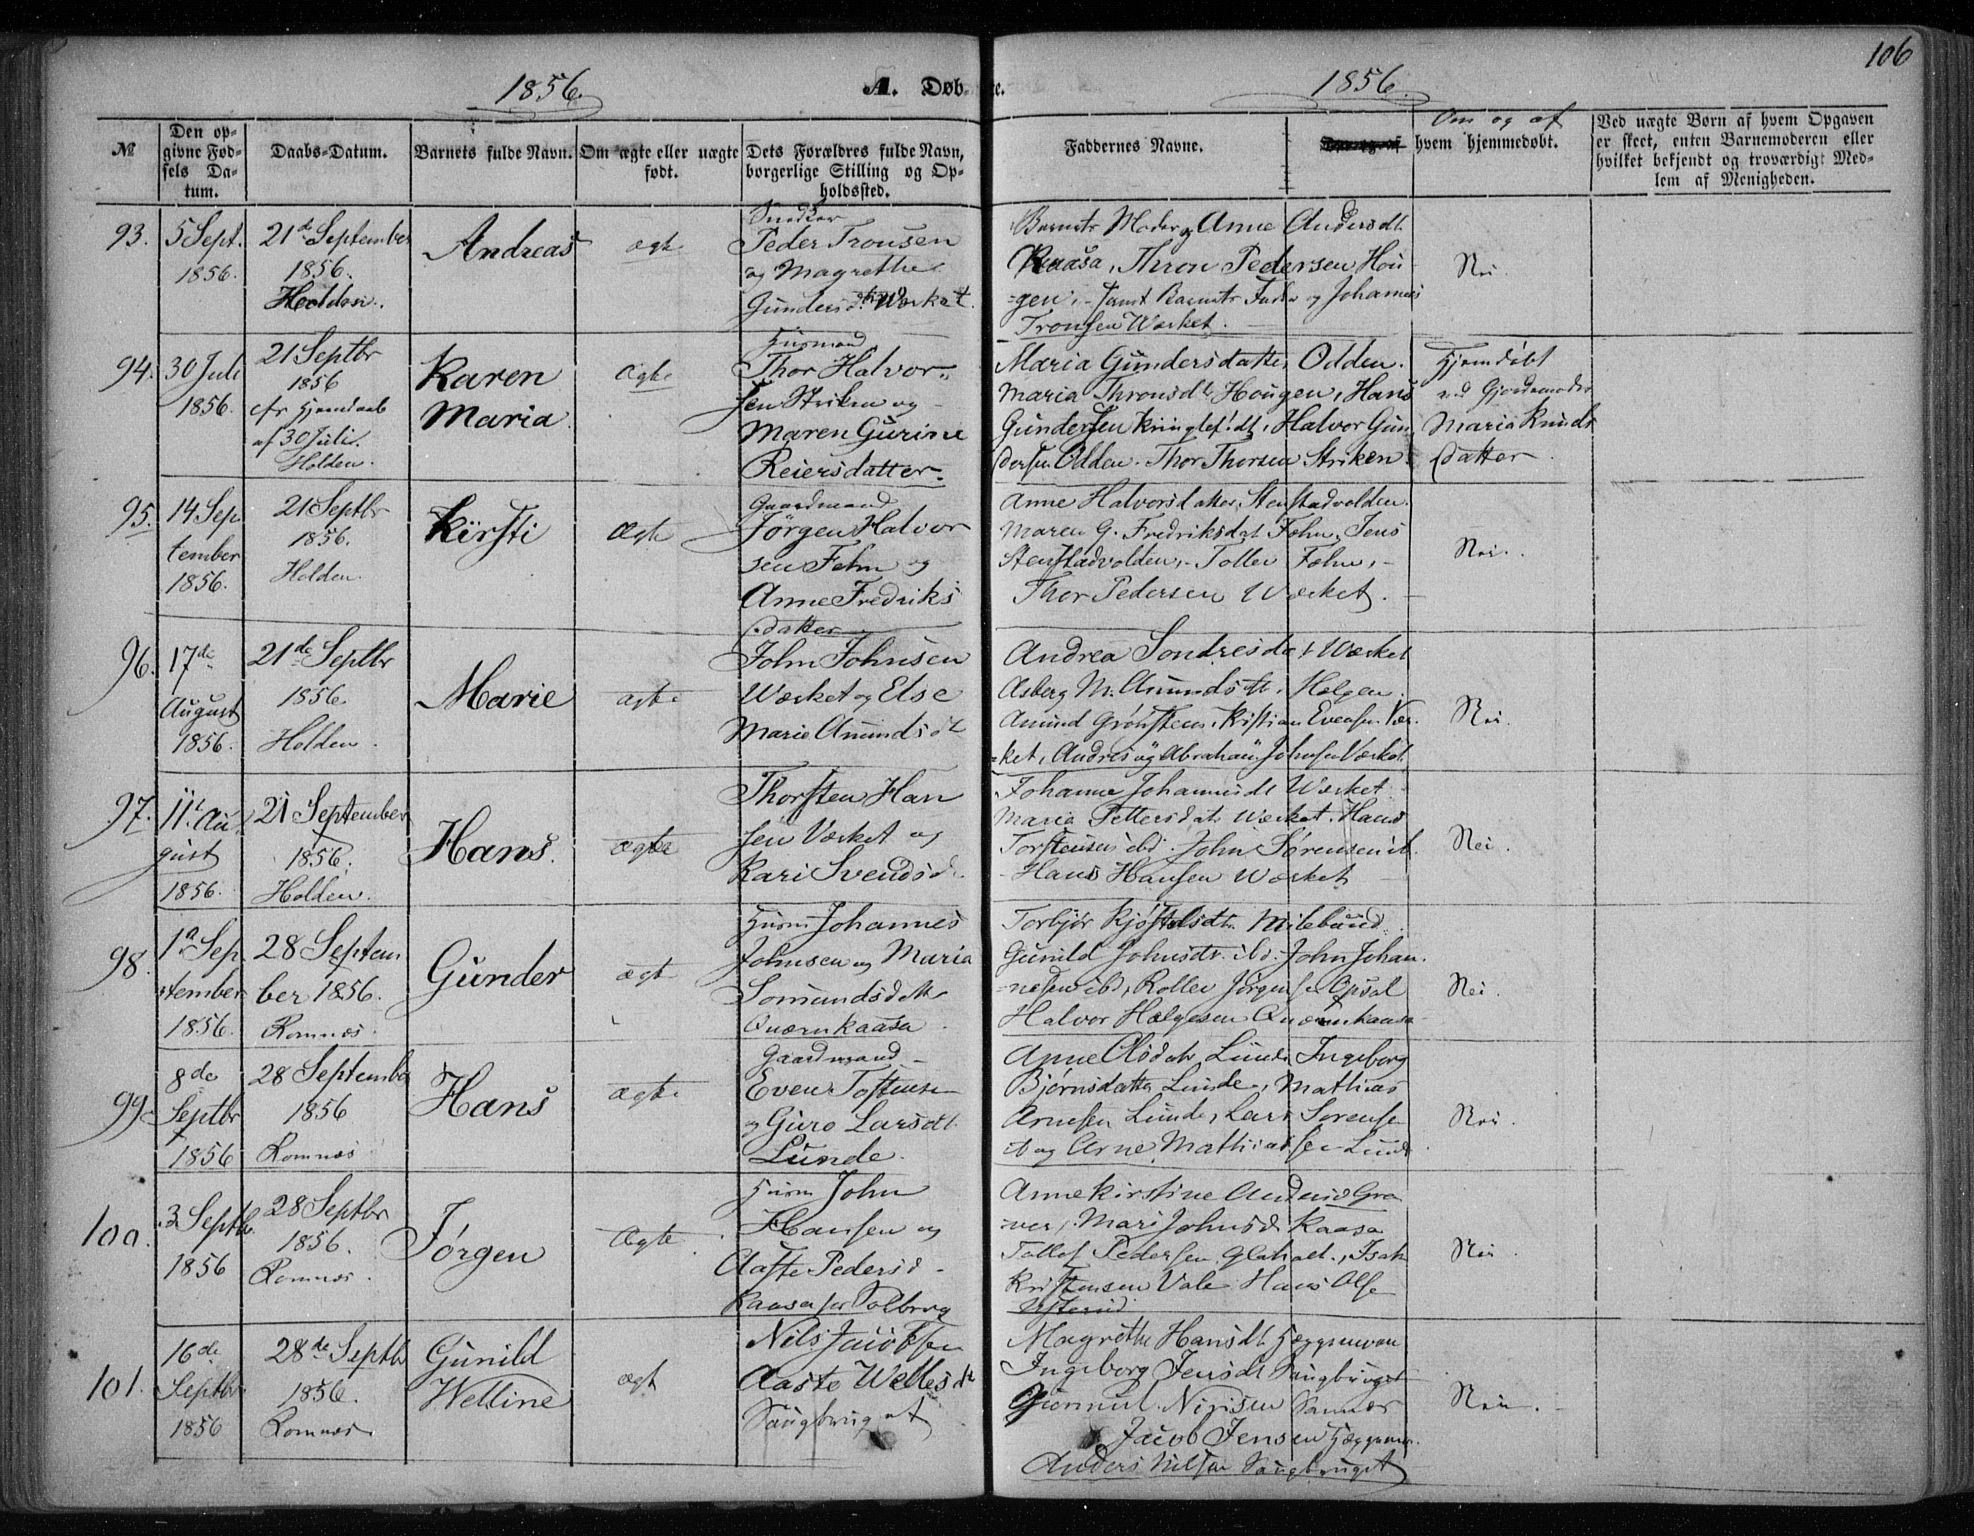 106
1856.
A. Døb-
te.
1856.
№
Den op-
givne Fød-
sels Da-
tum.
Daabs-Datum.
Barnets fulde Navn.
Om ægte eller uægte
født.
Dets Forældres fulde Navn,
borgerlige Stilling og Op-
holdssted.
Faddernes Navne.
Om og af
hvem hjemmedøbt.
Ved uægte Børn af hvem Opgaven
er skeet, enten Barnemoderen eller
hvilket bekjendt og troværdigt Med-
lem af Menigheden.
93.
5 Sept.
1856.
21de September
1856.
Holden.
Andreas
ægte
Snedker
Peder Tronsen
og Magrethe
Gundersd. Værket.
Barnets Moder og Anne Andersdt.
Kaasa, Thron Pedersen Hou-
gen, samt Barnets Fader og Johannes
Tronsen Værket.
Nei.
94.
30 Juli
1856.
21 Septbr
1856
efr Hjemdaab
af 30 Juli.
Holden.
Karen
Maria
Ægte
Husmand
Thor Halvor-
sen Striken og
Maren Gurine
Reiersdatter.
Maria Gundersdatter Odden.
Maria Thronsdt Hougen, Hans
Gundersen, Halvor Gun
dersen Odden. Thor Thorsen Striken.
Hjemdøbt
ved Gjordemoder
Maria Knuds
datter.
95.
14 Sep
tember
1856.
21 Septbr
1856.
Holden.
Kirsti
Ægte
Gaardmand
Jørgen Halvor
sen Fehn og
Anne Fredriks
datter
Anne Halvorsdatter Stenstadvolden.
Maren G. Fredriksdat Fehn, Jens
Stenstadvolden, Tollev Fehn,
Thor Pedersen Værket.
Nei.
96.
17de
August
1856.
21de Septbr
1856.
Holden.
Marie
ægte
John Johnsen
Værket og Else
Marie Amundsdt
Andrea Sondresdat Værket
Asberg M. Amundsdt. Helgen
Amund Grønsteen, Kristian Evensen Vær-
ket, Andreas og Abraham Johnsen Værket.
Nei.
97.
11t Au
gust
1856.
21 September
1856.
Holden.
Hans.
ægte
Thorsten Han
sen Værket og
Kari Svendsd.
Johanne Johannesdt Værket
Maria Pettersdat Værket, Hans
Torstensen ibd. John Sørensen ib.
Hans Hansen Værket
Nei.
98.
1a Sep
tember
1856.
28 Septem
ber 1856.
Romnæs.
Gunder
ægte
Husm Johannes
Johnsen og Maria
Somundsdatt
Quærnkaasa
Torbjør Kjøstelsdtr. Milebund.
Gunild Johnsdtr. ibd. John Johan
nesen ibd, Rollev Jørgensen Opsal
Halvor Helgesen Quærnkaasa
Nei.
99.
8de
Septbr
1856
28 September
1856
Romnæs
Hans
ægte
Gaardmand
Even Tostensen
og Guro Larsdt.
Lunde.
Anne Olsdatr Lunde Ingeborg
Bjørnsdatter Lunde, Mathias
Arnesen Lunde, Lars Sorensen
ib og Arne Mathiassen Lunde
Nei.
100.
3 Septbr.
1856
28 Septbr
1856.
Romnæs.
Jørgen
Ægte
Husm John
Hansen og
Aaste Pedersd.
Kaasa
Anne Kirstine Gra
ver, Mari Johnsd Kaasa
Tollef Pedersen, Isak
Kristensen Vale Hans Olsen
Nei.
101.
16de
Septbr
1856
28de Septb
1856.
Romnæs
Gunild
Welline
ægt
Nils Jacobsen
Aaste Wellesdt
Saugbruget
Magrethe Hansdt. Hæggenvan
Ingeborg Jensdt Saugbruget
Gunnul Nirisen
Jacob Jensen
Anders Nilsen Saugbruget
Nei.